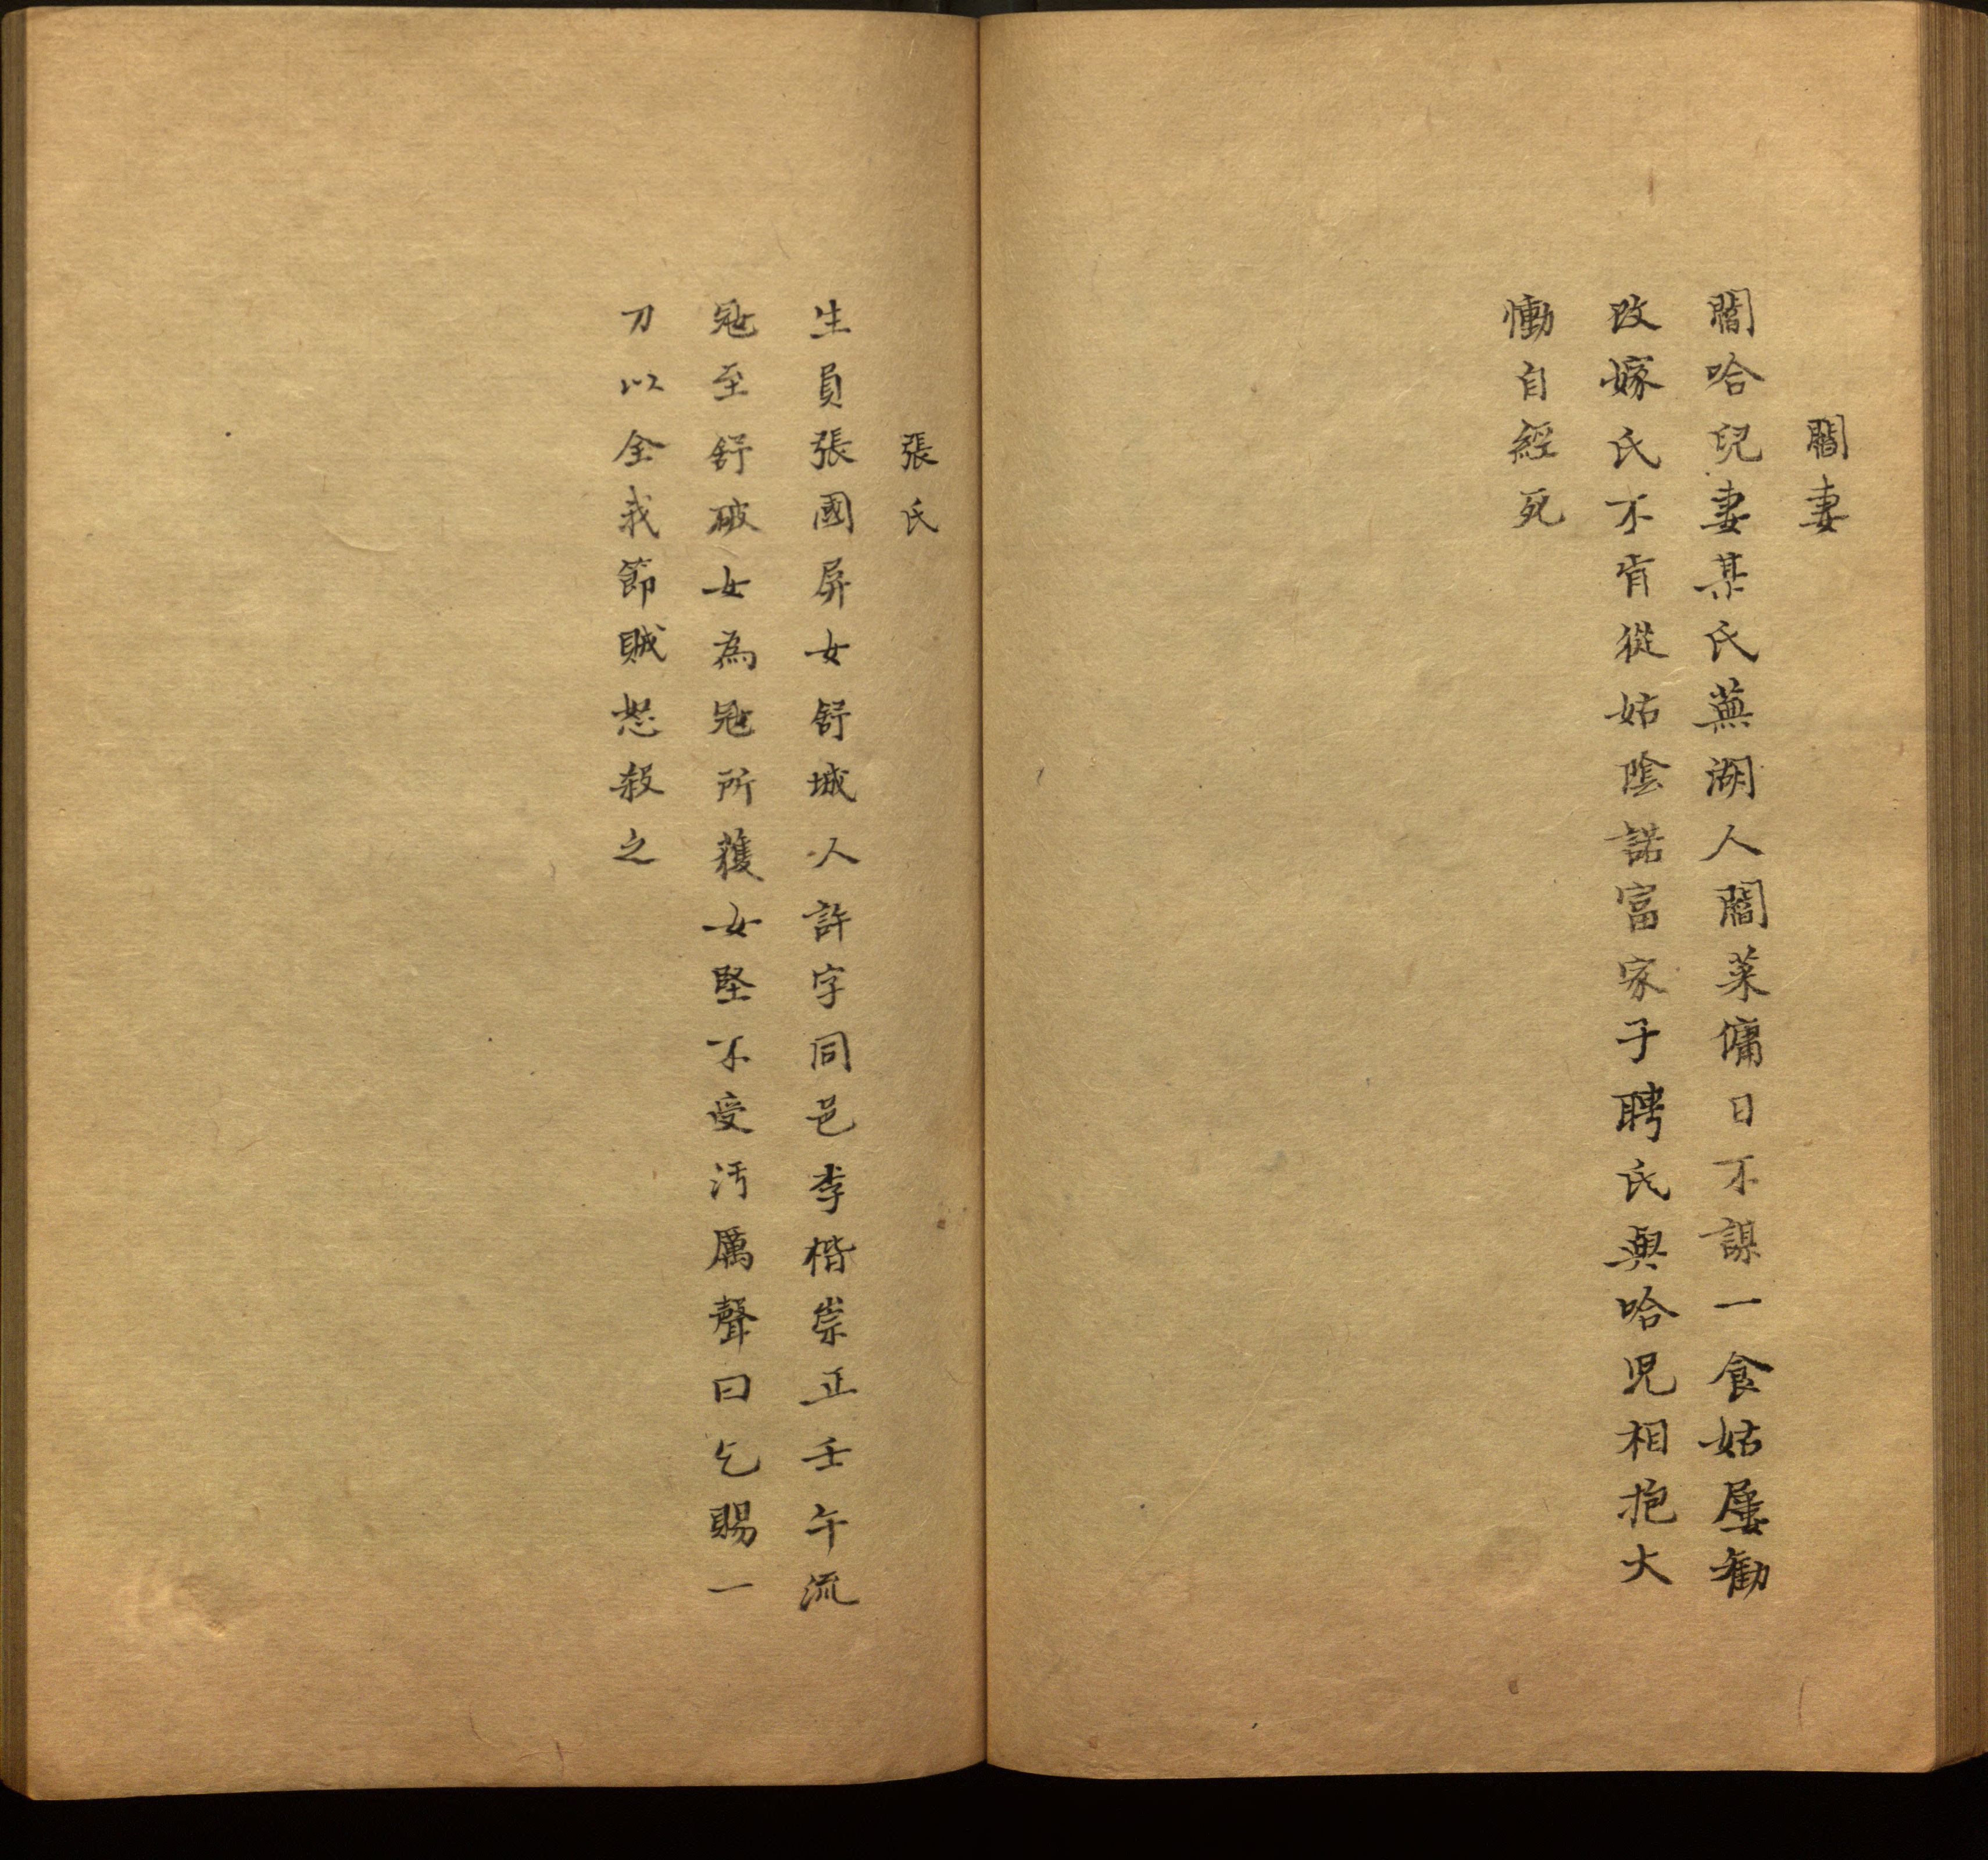 閻妻
閻哈兒妻某氏蕪湖人閻菜傭日不謀一食姑屢勸
改嫁氏不肯從姑陰諾富家子聘氏與哈児相抱大
慟自經死
張氏
生員張國屏女舒城人許字同邑李楷崇正壬午流
𡨥至舒破女為𡨥所獲女堅不受汚厲聲曰乞賜一
刀以全我節賊怒殺之